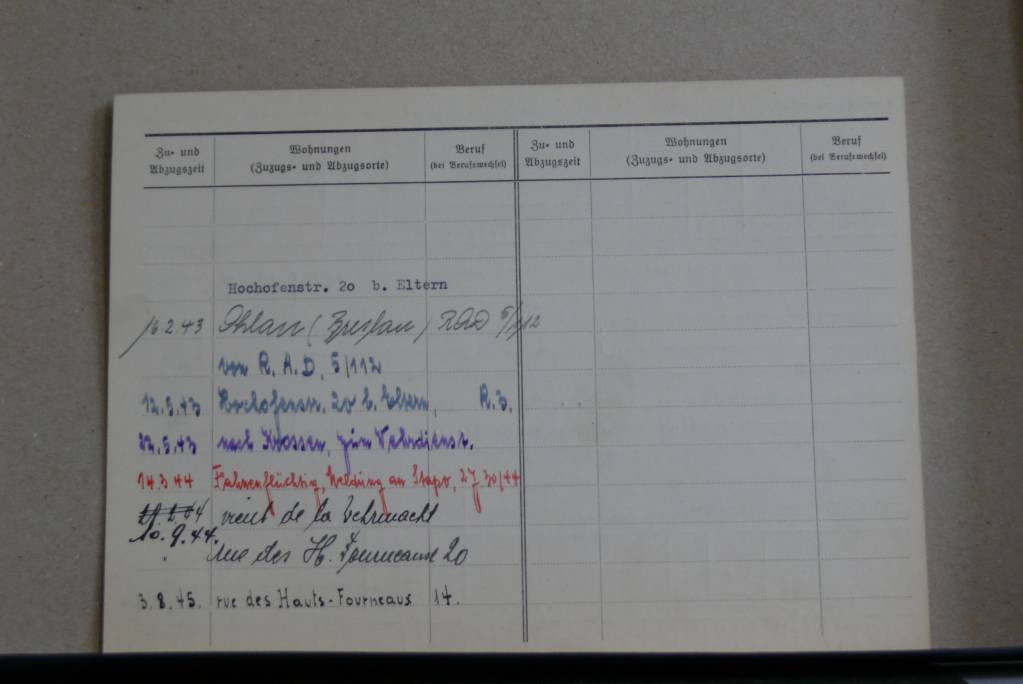 Zu- und Abzugszeit
Wohnungen
(Zuzugs- und Abzugsorte)
Beruf
(bei Berufswechsel)
Zu- und Abzugszeit
Wohnungen
(Zuzugs- und Abzugsorte)
Beruf
(bei Berufswechsel)
Hochofenstr. 20 b. Eltern
16.2.43 Ohlau (Breslau) RAD 5/112
von R.A.D. 5/112
12.5.43 Hochofenstr. 20 b. Eltern, R.B.
22.5.43 nach Krossen, zum Wehrdienst.
14.3.44 Fahnenflüchtig, Meldung an Stapo, 27.30/44
vient de la Wehrmacht
10.9.44.
" rue des H. Fourneaux 20
3.8.45. rue des Hauts-Fourneaus 14.